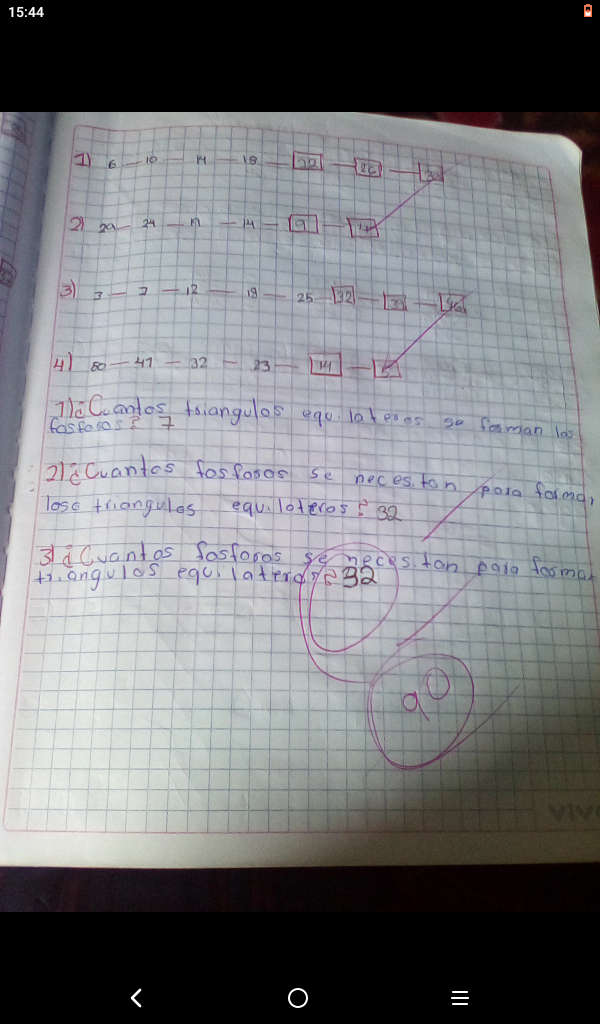 15:44
1) 6 — 10 — 14 — 18 — 22 — 26 — 30
2) 29 — 24 — 19 — 14 — 9 — 4
3) 3 — 7 — 12 — 18 — 25 — 32 —
4) 50 — 41 — 32 — 23 — 14 — 5
1) ¿Cuantos triangulos equilateros se forman los
fosforos? 7
2) ¿Cuantos fosforos se necesitan para formar
lose triangulos equilateros? 32
3) ¿Cuantos fosforos se necesitan para formar
triangulos equilateros? 32
VIV